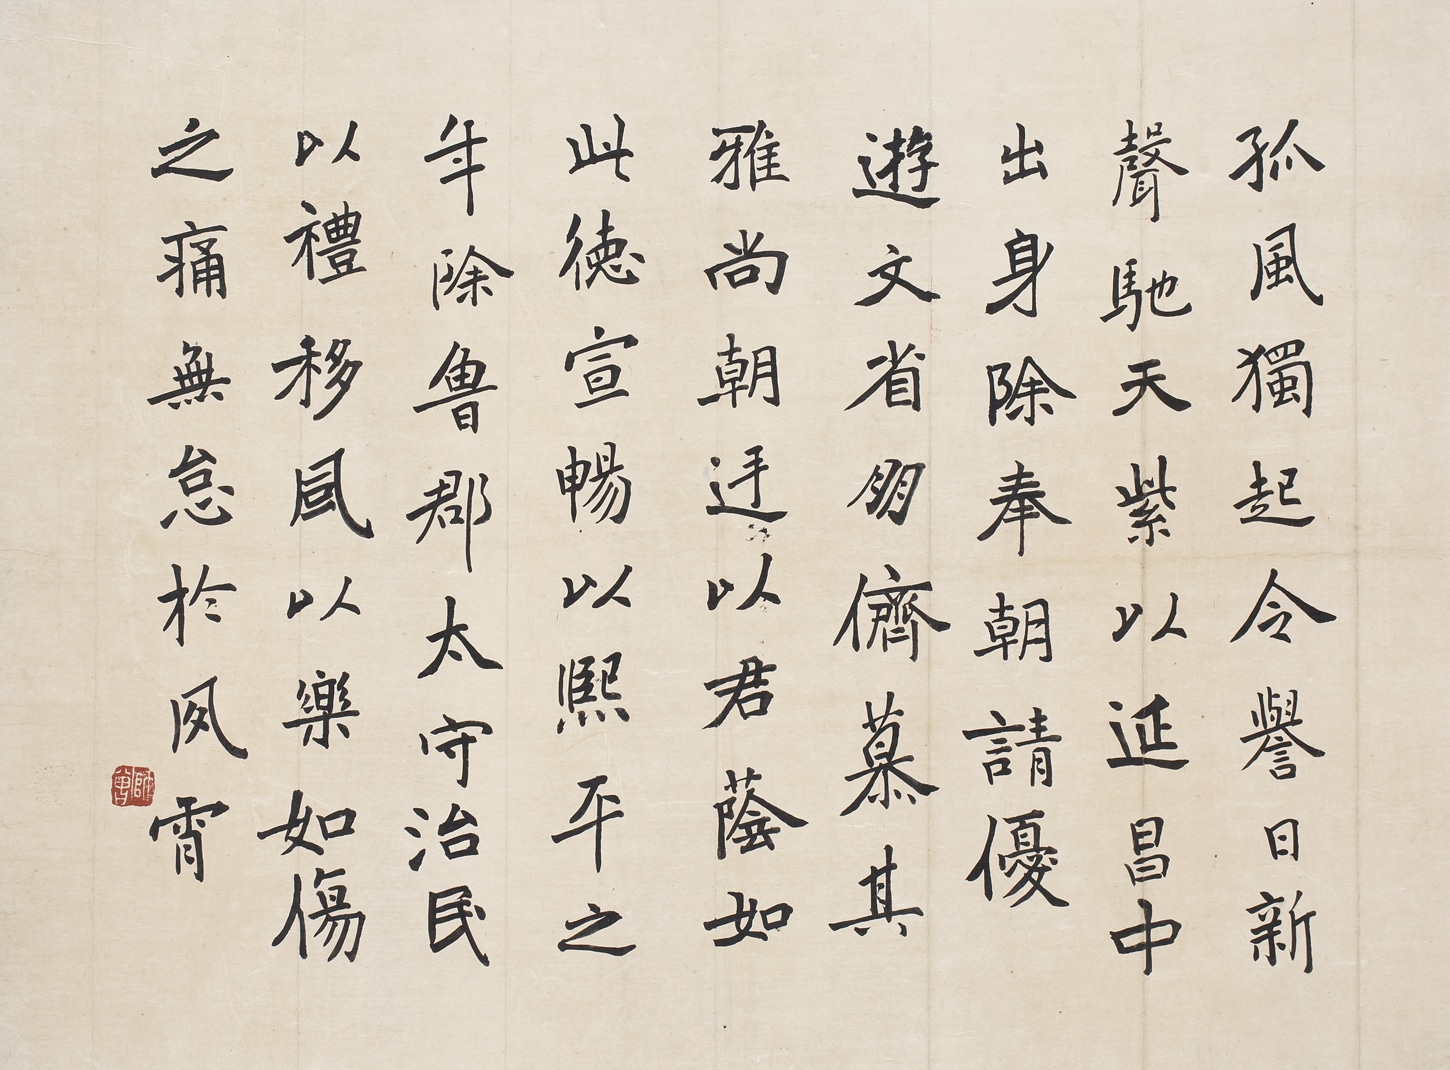 孤風獨起令譽日新
聲馳天紫以延昌中
出身除奉朝請優
遊文省朋儕慕其
雅尚朝迂以君蔭如
此德宣暢以熙平之
年除魯郡太守治民
以禮移風以樂如傷
之痛無怠於夙霄